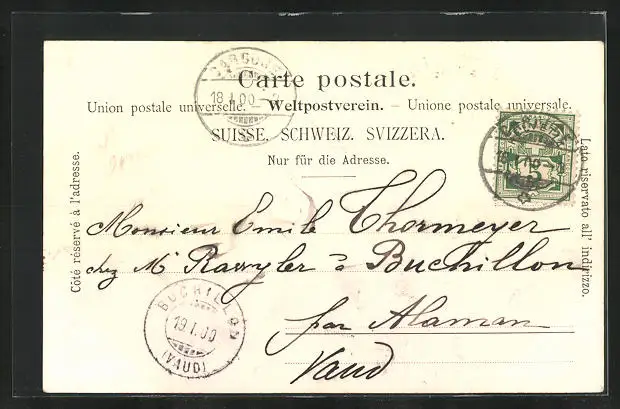 Carte postale.
Union postale universelle. – Weltpostverein. – Unione postale universale.
SUISSE. SCHWEIZ. SVIZZERA.
Nur für die Adresse.
Côté réservé à l'adresse.
Lato riservato all' indirizzo.
18 I 00
5
Monsieur Emile Thormeyer
chez Mr Rawyler à Buchillon
par Alaman
Vaud
BUCHILLON
19 I 00
(VAUD)